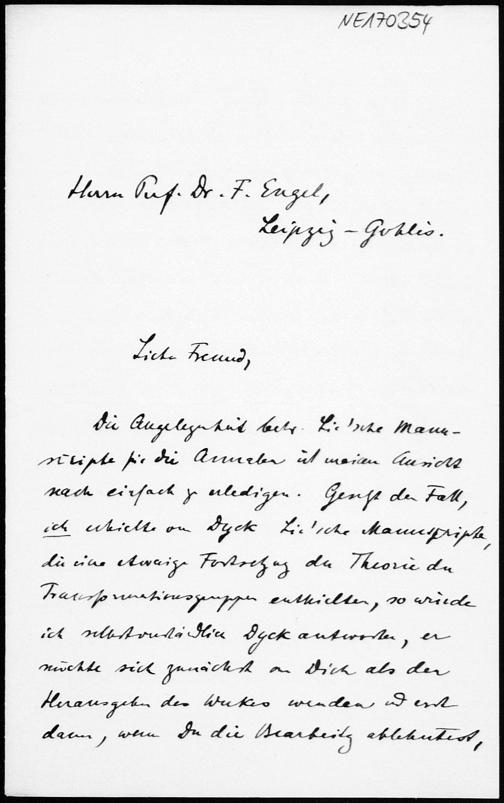 NE170354
Herrn Prof. Dr. F. Engel,
Leipzig-Gohlis.
Lieber Freund,
Die Angelegenheit betr. Lie'sche Manu-
scripte für die Annalen ist meiner Ansicht
nach einfach zu erledigen. Gesetzt den Fall,
ich erhielte von Dyck Lie'sche Manuscripte,
die eine etwaige Fortsetzung der Theorie der
Transformationsgruppen enthielten, so würde
ich selbstverständlich Dyck antworten, er
möchte sich zunächst an Dich als den
Herausgeber des Werkes wenden und erst
dann, wenn Du die Bearbeitung ablehntest,